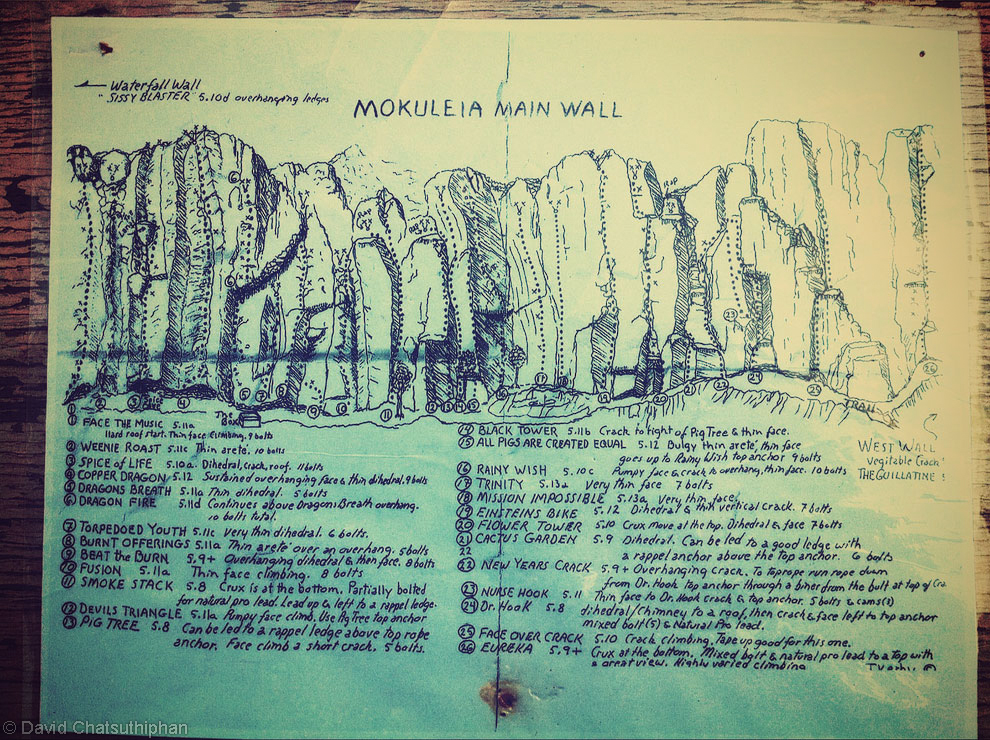 Waterfall Wall
"SISSY BLASTER" 5.10d overhanging ledges
MOKULEIA MAIN WALL
The Box
TRAIL
① FACE THE MUSIC 5.11a
Hard roof start. Thin face climbing. 9 bolts
② WEENIE ROAST 5.11c Thin arete. 10 bolts
③ SPICE of LIFE 5.10a. Dihedral, crack, roof. 11 bolts
④ COPPER DRAGON 5.12 Sustained overhanging face & thin dihedral. 9 bolts
⑤ DRAGONS BREATH 5.11a Thin dihedral. 5 bolts
⑥ DRAGON FIRE 5.11d Continues above Dragons Breath overhang.
10 bolts total.
⑦ TORPEDOED YOUTH 5.11c Very thin dihedral. 6 bolts.
⑧ BURNT OFFERINGS 5.11a Thin arete over an overhang. 5 bolts
⑨ BEAT the BURN 5.9+ Overhanging dihedral & then face. 8 bolts
⑩ FUSION 5.11a Thin face climbing. 8 bolts
⑪ SMOKE STACK 5.8 Crux is at the bottom. Partially bolted
for natural pro lead. Lead up & left to a rappel ledge.
⑫ DEVILS TRIANGLE 5.11a Pumpy face climb. Use Pig Tree top anchor
⑬ PIG TREE 5.8 Can be led to a rappel ledge above top rope
anchor. Face climb a short crack. 5 bolts.
⑭ BLACK TOWER 5.11b Crack to right of Pig Tree & thin face.
⑮ ALL PIGS ARE CREATED EQUAL 5.12 Bulgy thin arete, thin face
goes up to Rainy Wish top anchor 9 bolts
⑯ RAINY WISH 5.10c Pumpy face & crack to overhang, thin face. 10 bolts
⑰ TRINITY 5.13a Very thin face 7 bolts
⑱ MISSION IMPOSSIBLE 5.13a Very thin face.
⑲ EINSTEINS BIKE 5.12 Dihedral & thin vertical crack. 7 bolts
⑳ FLOWER TOWER 5.10 Crux move at the top. Dihedral & face 7 bolts
㉑ CACTUS GARDEN 5.9 Dihedral. Can be led to a good ledge with
22 a rappel anchor above the top anchor. 6 bolts
㉒ NEW YEARS CRACK 5.9+ Overhanging Crack. To toprope run rope down
from Dr. Hook top anchor through a biner from the bolt at top of Cra
㉓ NURSE HOOK 5.11 Thin face to Dr. Hook crack & top anchor. 5 bolts & cams(2)
㉔ Dr. HooK 5.8 dihedral/chimney to a roof, then crack & face left to top anchor
mixed bolt(5) & Natural Pro lead.
㉕ FACE OVER CRACK 5.10 Crack climbing. Tape up good for this one.
㉖ EUREKA 5.9+ Crux at the bottom. Mixed bolt & natural pro lead to a top with
a great view. Highly varied climbing
WEST WALL
Vegitable Crack
THE GUILLATINE!
© David Chatsuthiphan